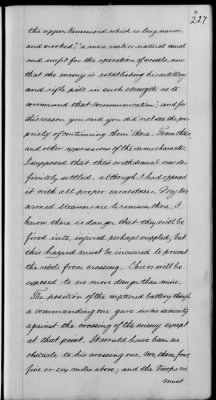 227
the upper Nansemond which is long, narrow
and crooked, "a mere creek or natural canal
and unfit for the operation of vessels, now
that the enemy is establishing his artillery
and rifle pits in such strength as to
command that communication;" and for
this reason you said you did not see the pro-
priety of continuing them there. From these
and other expressions of the same character
I supposed that their withdrawal was de-
finitely settled, although I had opposed
it with all proper earnestness. My two
armed steamers are to remain there. I
know there is danger that they will be
fired into, injured, perhaps crippled, but
this hazard must be incurred to prevent
the rebels from crossing. Others will be
exposed to no more danger than mine.
The position of the captured battery though
a commanding one gave us no security
against the crossing of the enemy except
at that point. It would have been no
obstacle to his crossing one, two, three, four,
five or six miles above; and the troops on
must